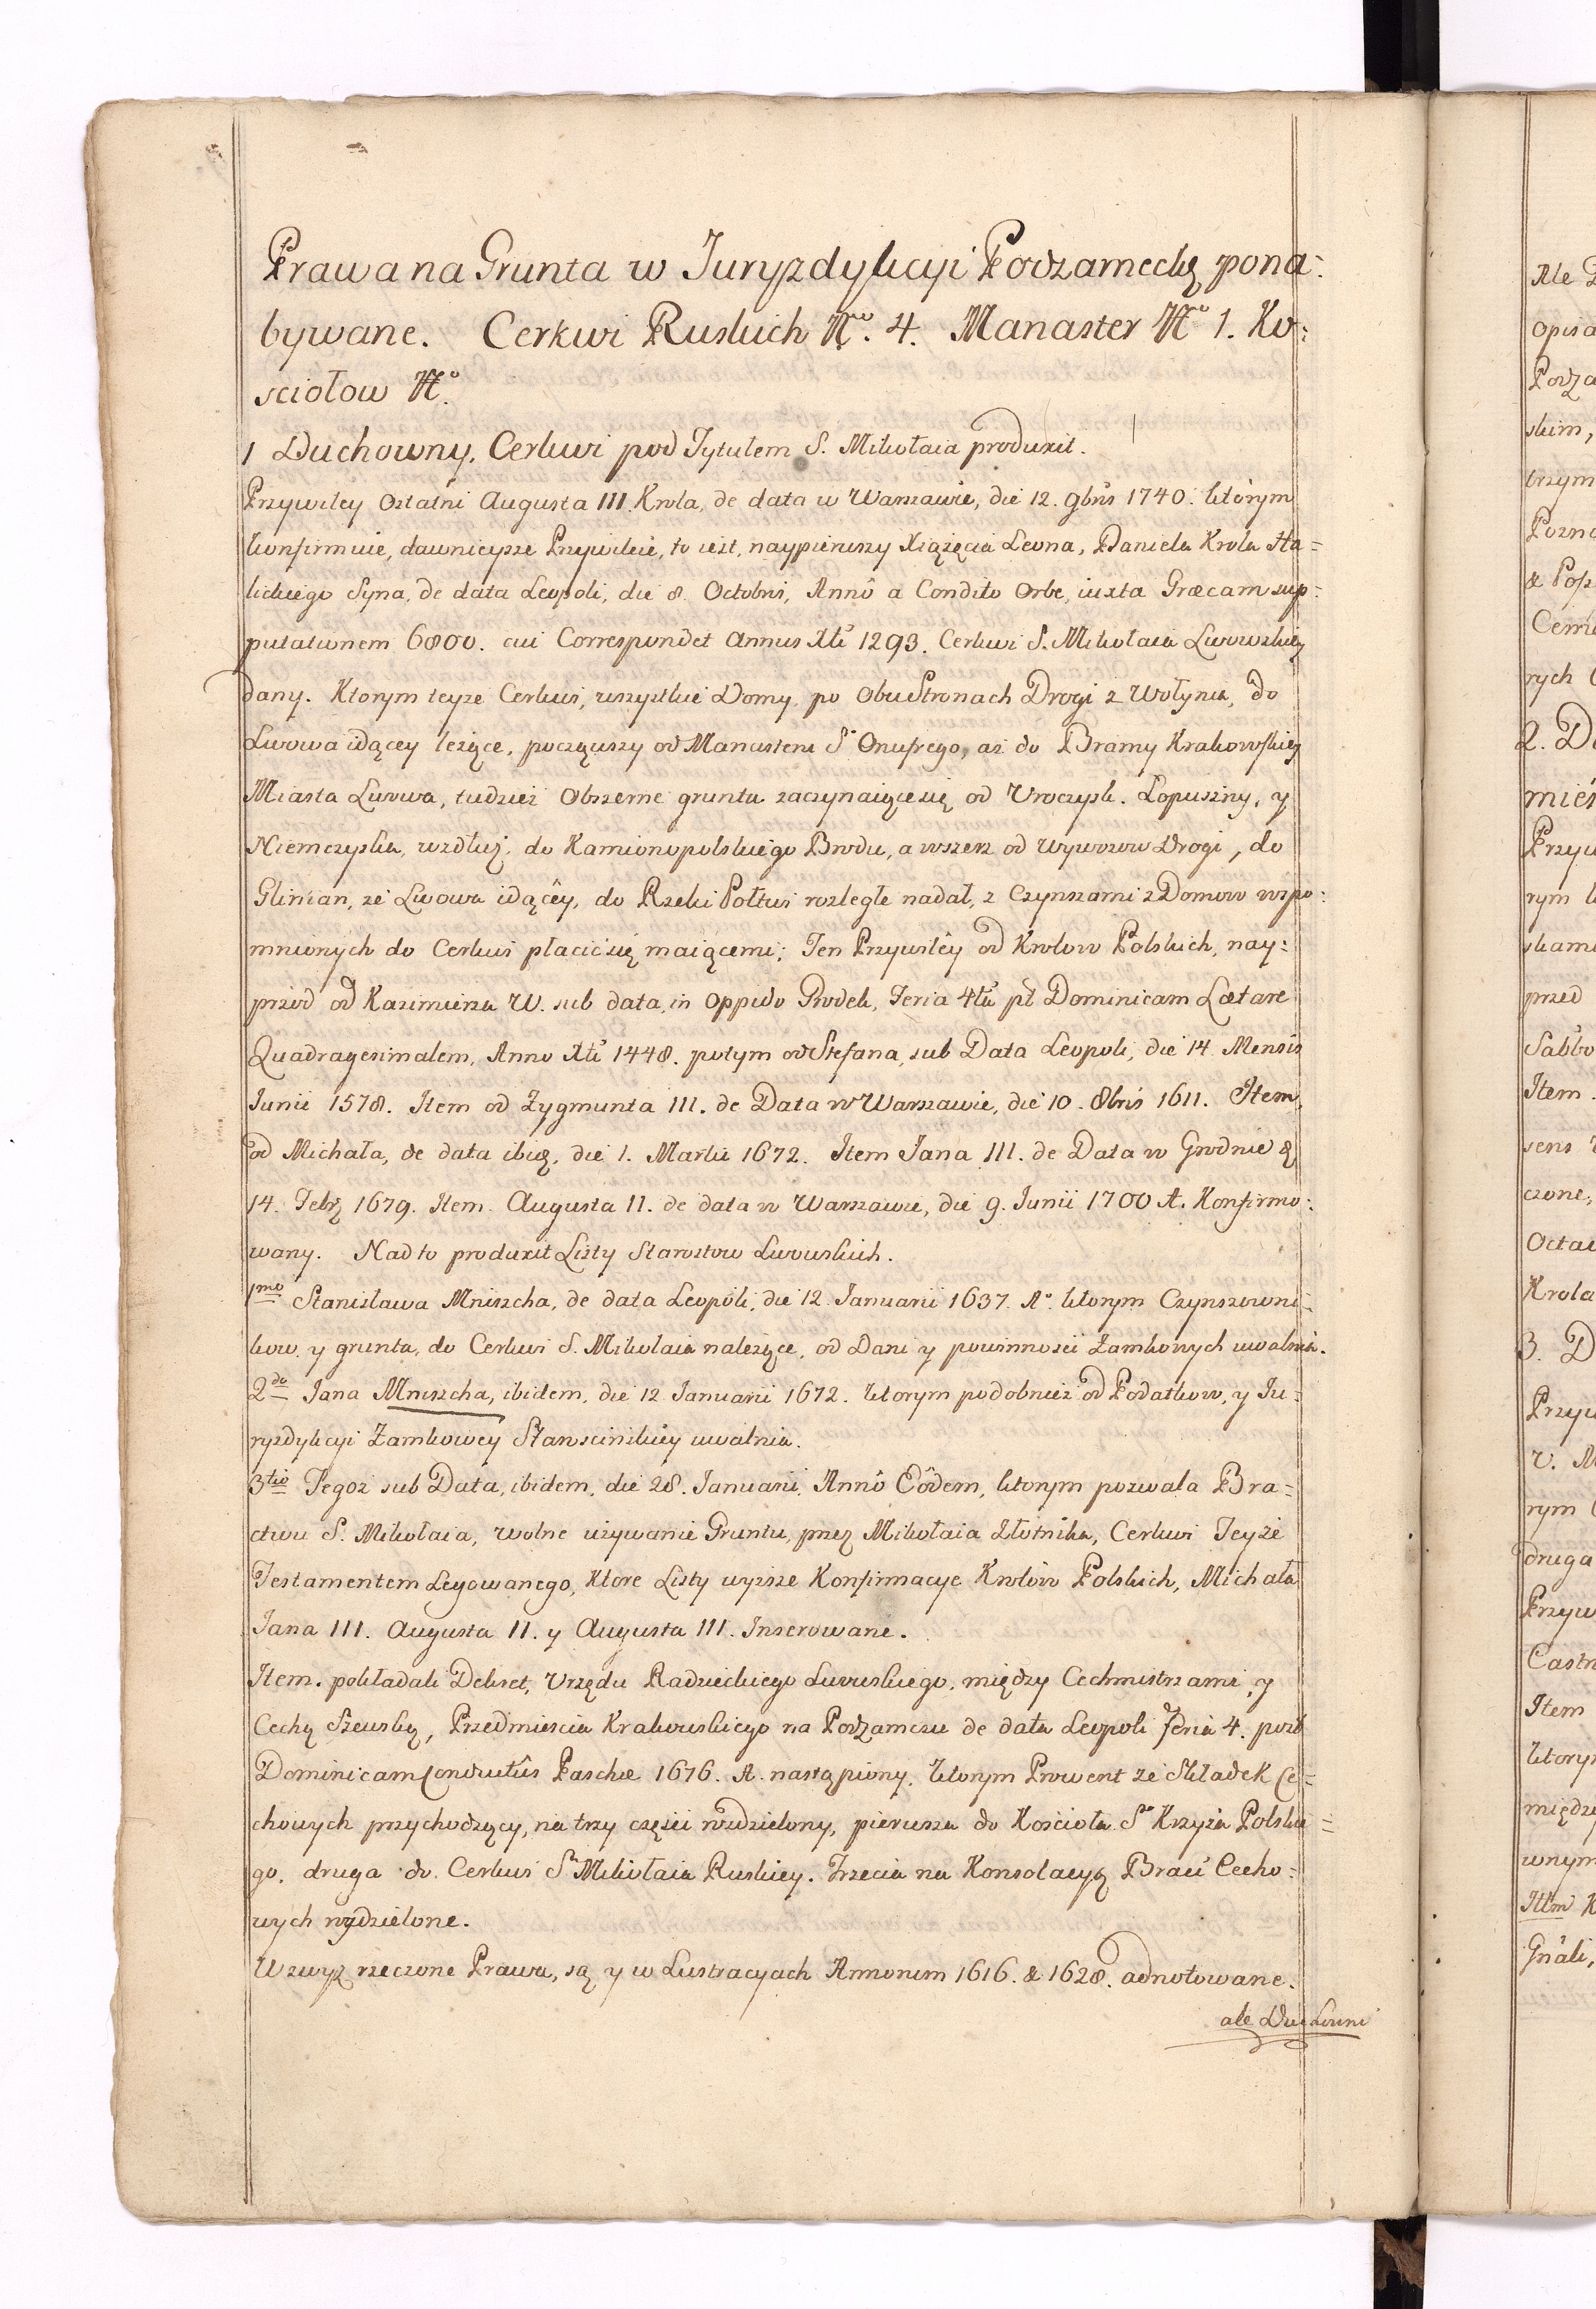 Prawa na Grunta w Juryzdykcyi Podzamecky pona=
bywane. Cerkwi Ruskich Nro. 4. Manaster No 1. Ko:
sciołow No.
1 Duchowny, Cerkwi pod Tytułem S. Mikołaia produxit.
Przywiley Ostatni Augusta III. Krola, de data w Warszawie, die 12. 9bris 1740. ktorym
konfirmuie, dawnieysze Przywileie, to iest, naypierwszy Xiążęcia Leona, Daniela Krola Ha=
lickiego Syna, de data Leopoli, die 8. Octobris, Annô a Condito Orbe, iuxta Græcam sup=
putationem 6800. cui Correspondet Annus Xti 1293. Cerkwi S. Mikołaia Lwowskiey
dany. Ktorym teyze Cerkwi, wszystkie Domy, po Obu Stronach Drogi z Wołynia, do
Lwowa idącey leżące, począwszy od Manasteru So Onufrego, aż do Bramy Krakowskiey
Miasta Lwowa, tudzież Obszerne grunta zaczynaiące się od Uroczysk. Łopuszny, y
Niemczyska, wzdłuż, do Kamionopolskiego Brodu, a wszerz od Wywozow Drogi, do
Glinian, ze Lwowa idącêy, do Rzeki Połtwi rozległe nadał, z Czynszami z Domow wspo=
mnionych do Cerkwi płacić się maiącemi; Ten Przywilêy od Krolow Polskich, nay:
przod od Kazimierza W. sub data, in Oppido Grodek, Feria 4ta pt Dominicam Lætare
Quadragesimalem, Anno Xti 1448. potym od Stefana, sub Data Leopoli, die 14 Mensis
Junii 1578. Item od Zygmunta III. de Data w Warszawie, die 10. 8bris 1611. Item,
od Michała, de data ibid, die 1. Martii 1672. Item Jana III. de Data w Grodnie d
14. Febr 1679. Item. Augusta II. de data w Warszawie, die 9. Junii 1700 A. Konfirmo:
wany. Nad to produxit Listy Starostow Lwowskich.
1mo Stanisława Mniszcha, de data Leopoli, die 12. Januarii 1637. Ao. ktorym Czynszowni=
kow y grunta, do Cerkwi S. Mikołaia należące, od Dani y powinności Zamkowych uwalnia.
2do Jana Mniszcha, ibidem, die 12 Januarii 1672. ktorym podobnież od Podatkow, y Ju=
ryzdykcyi Zamkowêy Staroscińskiey uwalnia.
3tio Tegoż sub Data, ibidem, die 28. Januarii, Annô Eôdem, ktorym pozwala Bra=
ctwu S. Mikołaia, wolne używanie Gruntu, przez Mikołaia Złotnika, Cerkwi Teyże
Testamentem Legowanego, Ktore Listy wyższe Konfirmacye Krolôw Polskich, Michała
Jana III. Augusta II. y Augusta III. Inserowane.
Item. pokładali Dekret, Urzędu Radzieckiego Lwowskiego, między Cechmistrzami, y
Cechę Szewską, Przedmieścia Krakowskiego na Podzamczu de data Leopoli Feria 4. post
Dominicam Conductûs Paschæ 1676. A. nastąpiony, ktorym Prowent ze Składek Ce=
chowych przychodzący, na trzy części rozdzielony, pierwsza do Kościoła So Krzyża Polskie=
go, druga do Cerkwi So Mikołaia Ruskiey. Trzecia na Konsolacyą Braci Cecho=
wych wydzielone.
Wzwyż rzeczone Prawa, są y w Lustracyach Annorum 1616. & 1628. adnotowane.
ale Duchowni